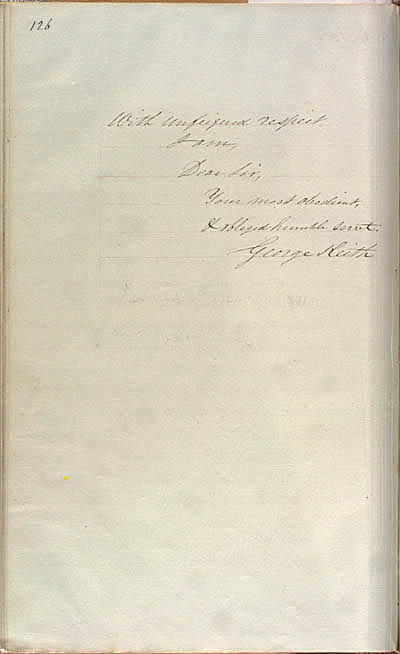 126
With unfeigned respect
I am,
Dear Sir,
Your most obedient,
& obliged humble servt.
George Keith